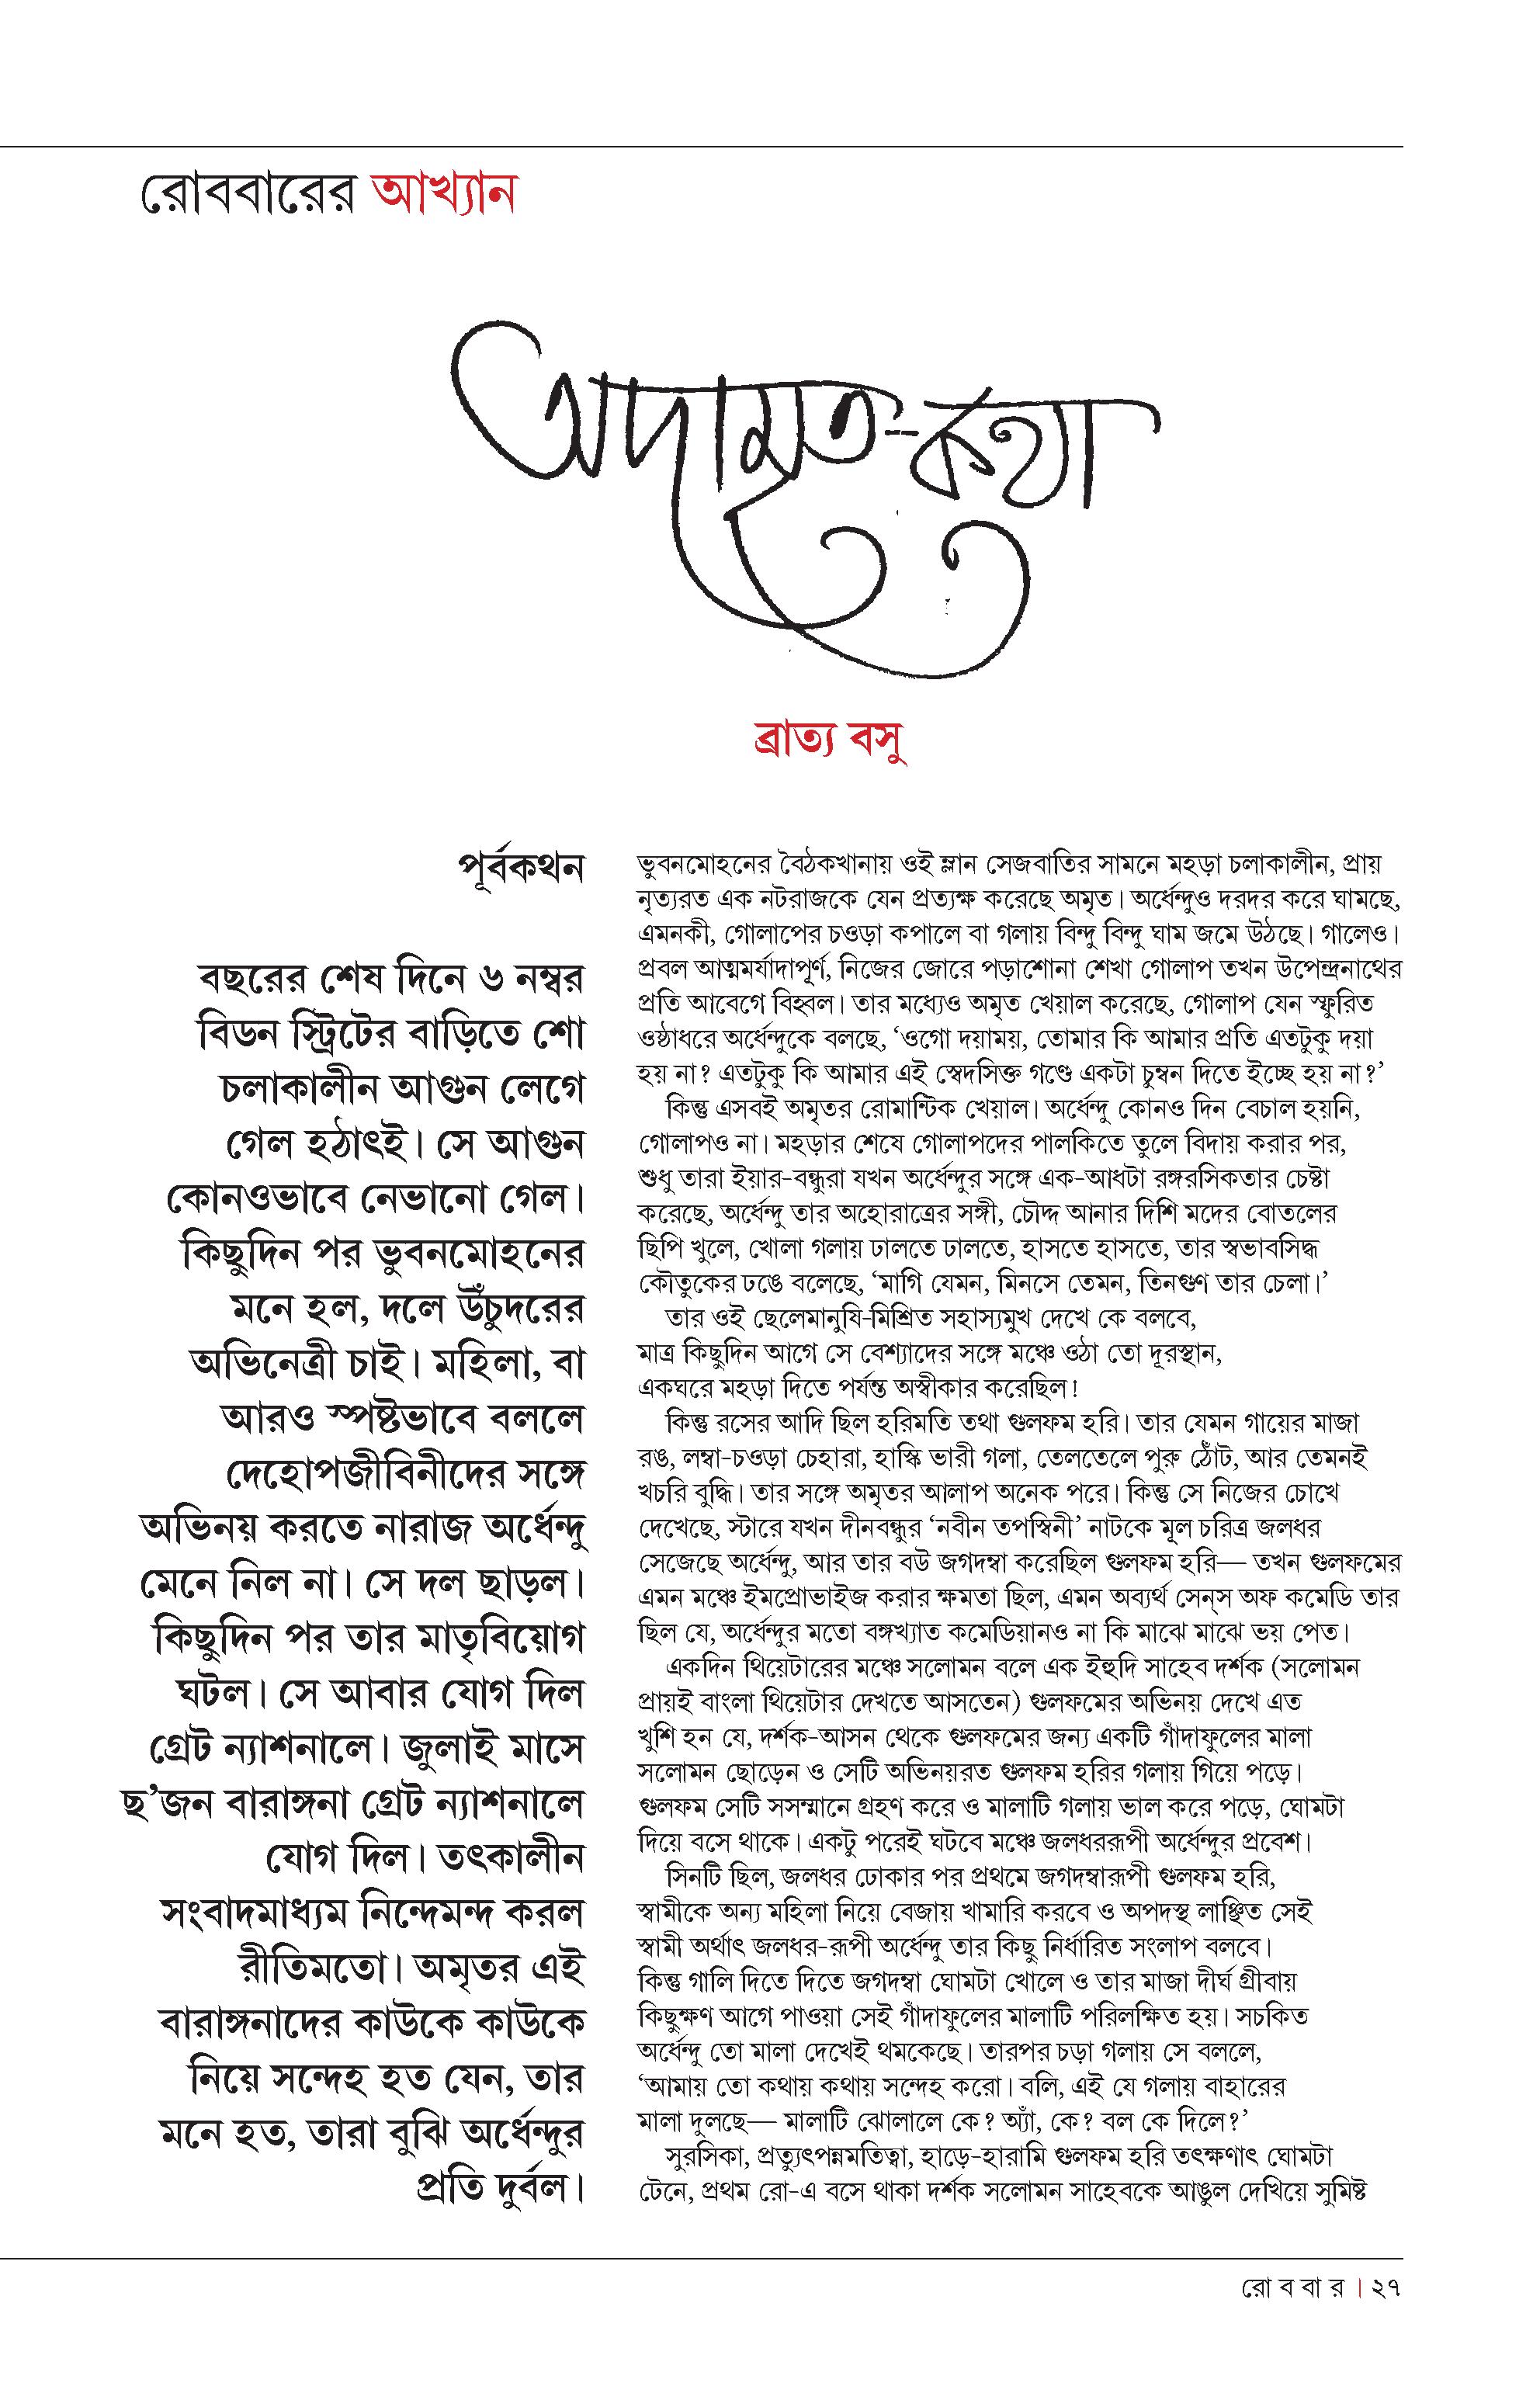 রোববারের আখ্যান
অদামৃত-কথা
ব্রাত্য বসু
পূর্বকথন
বছরের শেষ দিনে ৬ নম্বর
বিডন স্ট্রিটের বাড়িতে শো
চলাকালীন আগুন লেগে
গেল হঠাৎই। সে আগুন
কোনওভাবে নেভানো গেল।
কিছুদিন পর ভুবনমোহনের
মনে হল, দলে উঁচুদরের
অভিনেত্রী চাই। মহিলা, বা
আরও স্পষ্টভাবে বললে
দেহোপজীবিনীদের সঙ্গে
অভিনয় করতে নারাজ অর্ধেন্দু
মেনে নিল না। সে দল ছাড়ল।
কিছুদিন পর তার মাতৃবিয়োগ
ঘটল। সে আবার যোগ দিল
গ্রেট ন্যাশনালে। জুলাই মাসে
ছ’জন বারাঙ্গনা গ্রেট ন্যাশনালে
যোগ দিল। তৎকালীন
সংবাদমাধ্যম নিন্দেমন্দ করল
রীতিমতো। অমৃতর এই
বারাঙ্গনাদের কাউকে কাউকে
নিয়ে সন্দেহ হত যেন, তার
মনে হত, তারা বুঝি অর্ধেন্দুর
প্রতি দুর্বল।
ভুবনমোহনের বৈঠকখানায় ওই ম্লান সেজবাতির সামনে মহড়া চলাকালীন, প্রায়
নৃত্যরত এক নটরাজকে যেন প্রত্যক্ষ করেছে অমৃত। অর্ধেন্দুও দরদর করে ঘামছে,
এমনকী, গোলাপের চওড়া কপালে বা গলায় বিন্দু বিন্দু ঘাম জমে উঠছে। গালেও।
প্রবল আত্মমর্যাদাপূর্ণ, নিজের জোরে পড়াশোনা শেখা গোলাপ তখন উপেন্দ্রনাথের
প্রতি আবেগে বিহ্বল। তার মধ্যেও অমৃত খেয়াল করেছে, গোলাপ যেন স্ফুরিত
ওষ্ঠাধরে অর্ধেন্দুকে বলছে, ‘ওগো দয়াময়, তোমার কি আমার প্রতি এতটুকু দয়া
হয় না? এতটুকু কি আমার এই স্বেদসিক্ত গণ্ডে একটা চুম্বন দিতে ইচ্ছে হয় না?’
কিন্তু এসবই অমৃতর রোমান্টিক খেয়াল। অর্ধেন্দু কোনও দিন বেচাল হয়নি,
গোলাপও না। মহড়ার শেষে গোলাপদের পালকিতে তুলে বিদায় করার পর,
শুধু তারা ইয়ার-বন্ধুরা যখন অর্ধেন্দুর সঙ্গে এক-আধটা রঙ্গরসিকতার চেষ্টা
করেছে, অর্ধেন্দু তার অহোরাত্রের সঙ্গী, চৌদ্দ আনার দিশি মদের বোতলের
ছিপি খুলে, খোলা গলায় ঢালতে ঢালতে, হাসতে হাসতে, তার স্বভাবসিদ্ধ
কৌতুকের ঢঙে বলেছে, ‘মাগি যেমন, মিনসে তেমন, তিনগুণ তার চেলা।’
তার ওই ছেলেমানুষি-মিশ্রিত সহাস্যমুখ দেখে কে বলবে,
মাত্র কিছুদিন আগে সে বেশ্যাদের সঙ্গে মঞ্চে ওঠা তো দূরস্থান,
একঘরে মহড়া দিতে পর্যন্ত অস্বীকার করেছিল!
কিন্তু রসের আদি ছিল হরিমতি তথা গুলফম হরি। তার যেমন গায়ের মাজা
রঙ, লম্বা-চওড়া চেহারা, হাস্কি ভারী গলা, তেলতেলে পুরু ঠোঁট, আর তেমনই
খচরি বুদ্ধি। তার সঙ্গে অমৃতর আলাপ অনেক পরে। কিন্তু সে নিজের চোখে
দেখেছে, স্টারে যখন দীনবন্ধুর ‘নবীন তপস্বিনী’ নাটকে মূল চরিত্র জলধর
সেজেছে অর্ধেন্দু, আর তার বউ জগদম্বা করেছিল গুলফম হরি— তখন গুলফমের
এমন মঞ্চে ইমপ্রোভাইজ করার ক্ষমতা ছিল, এমন অব্যর্থ সেন্‌স অফ কমেডি তার
ছিল যে, অর্ধেন্দুর মতো বঙ্গখ্যাত কমেডিয়ানও না কি মাঝে মাঝে ভয় পেত।
একদিন থিয়েটারের মঞ্চে সলোমন বলে এক ইহুদি সাহেব দর্শক (সলোমন
প্রায়ই বাংলা থিয়েটার দেখতে আসতেন) গুলফমের অভিনয় দেখে এত
খুশি হন যে, দর্শক-আসন থেকে গুলফমের জন্য একটি গাঁদাফুলের মালা
সলোমন ছোড়েন ও সেটি অভিনয়রত গুলফম হরির গলায় গিয়ে পড়ে।
গুলফম সেটি সসম্মানে গ্রহণ করে ও মালাটি গলায় ভাল করে পড়ে, ঘোমটা
দিয়ে বসে থাকে। একটু পরেই ঘটবে মঞ্চে জলধররূপী অর্ধেন্দুর প্রবেশ।
সিনটি ছিল, জলধর ঢোকার পর প্রথমে জগদম্বারূপী গুলফম হরি,
স্বামীকে অন্য মহিলা নিয়ে বেজায় খামারি করবে ও অপদস্থ লাঞ্ছিত সেই
স্বামী অর্থাৎ জলধর-রূপী অর্ধেন্দু তার কিছু নির্ধারিত সংলাপ বলবে।
কিন্তু গালি দিতে দিতে জগদম্বা ঘোমটা খোলে ও তার মাজা দীর্ঘ গ্রীবায়
কিছুক্ষণ আগে পাওয়া সেই গাঁদাফুলের মালাটি পরিলক্ষিত হয়। সচকিত
অর্ধেন্দু তো মালা দেখেই থমকেছে। তারপর চড়া গলায় সে বললে,
‘আমায় তো কথায় কথায় সন্দেহ করো। বলি, এই যে গলায় বাহারের
মালা দুলছে— মালাটি ঝোলালে কে? অ্যাঁ, কে? বল কে দিলে?’
সুরসিকা, প্রত্যুৎপন্নমতিত্বা, হাড়ে-হারামি গুলফম হরি তৎক্ষণাৎ ঘোমটা
টেনে, প্রথম রো-এ বসে থাকা দর্শক সলোমন সাহেবকে আঙুল দেখিয়ে সুমিষ্ট
রো ব বা র । ২৭